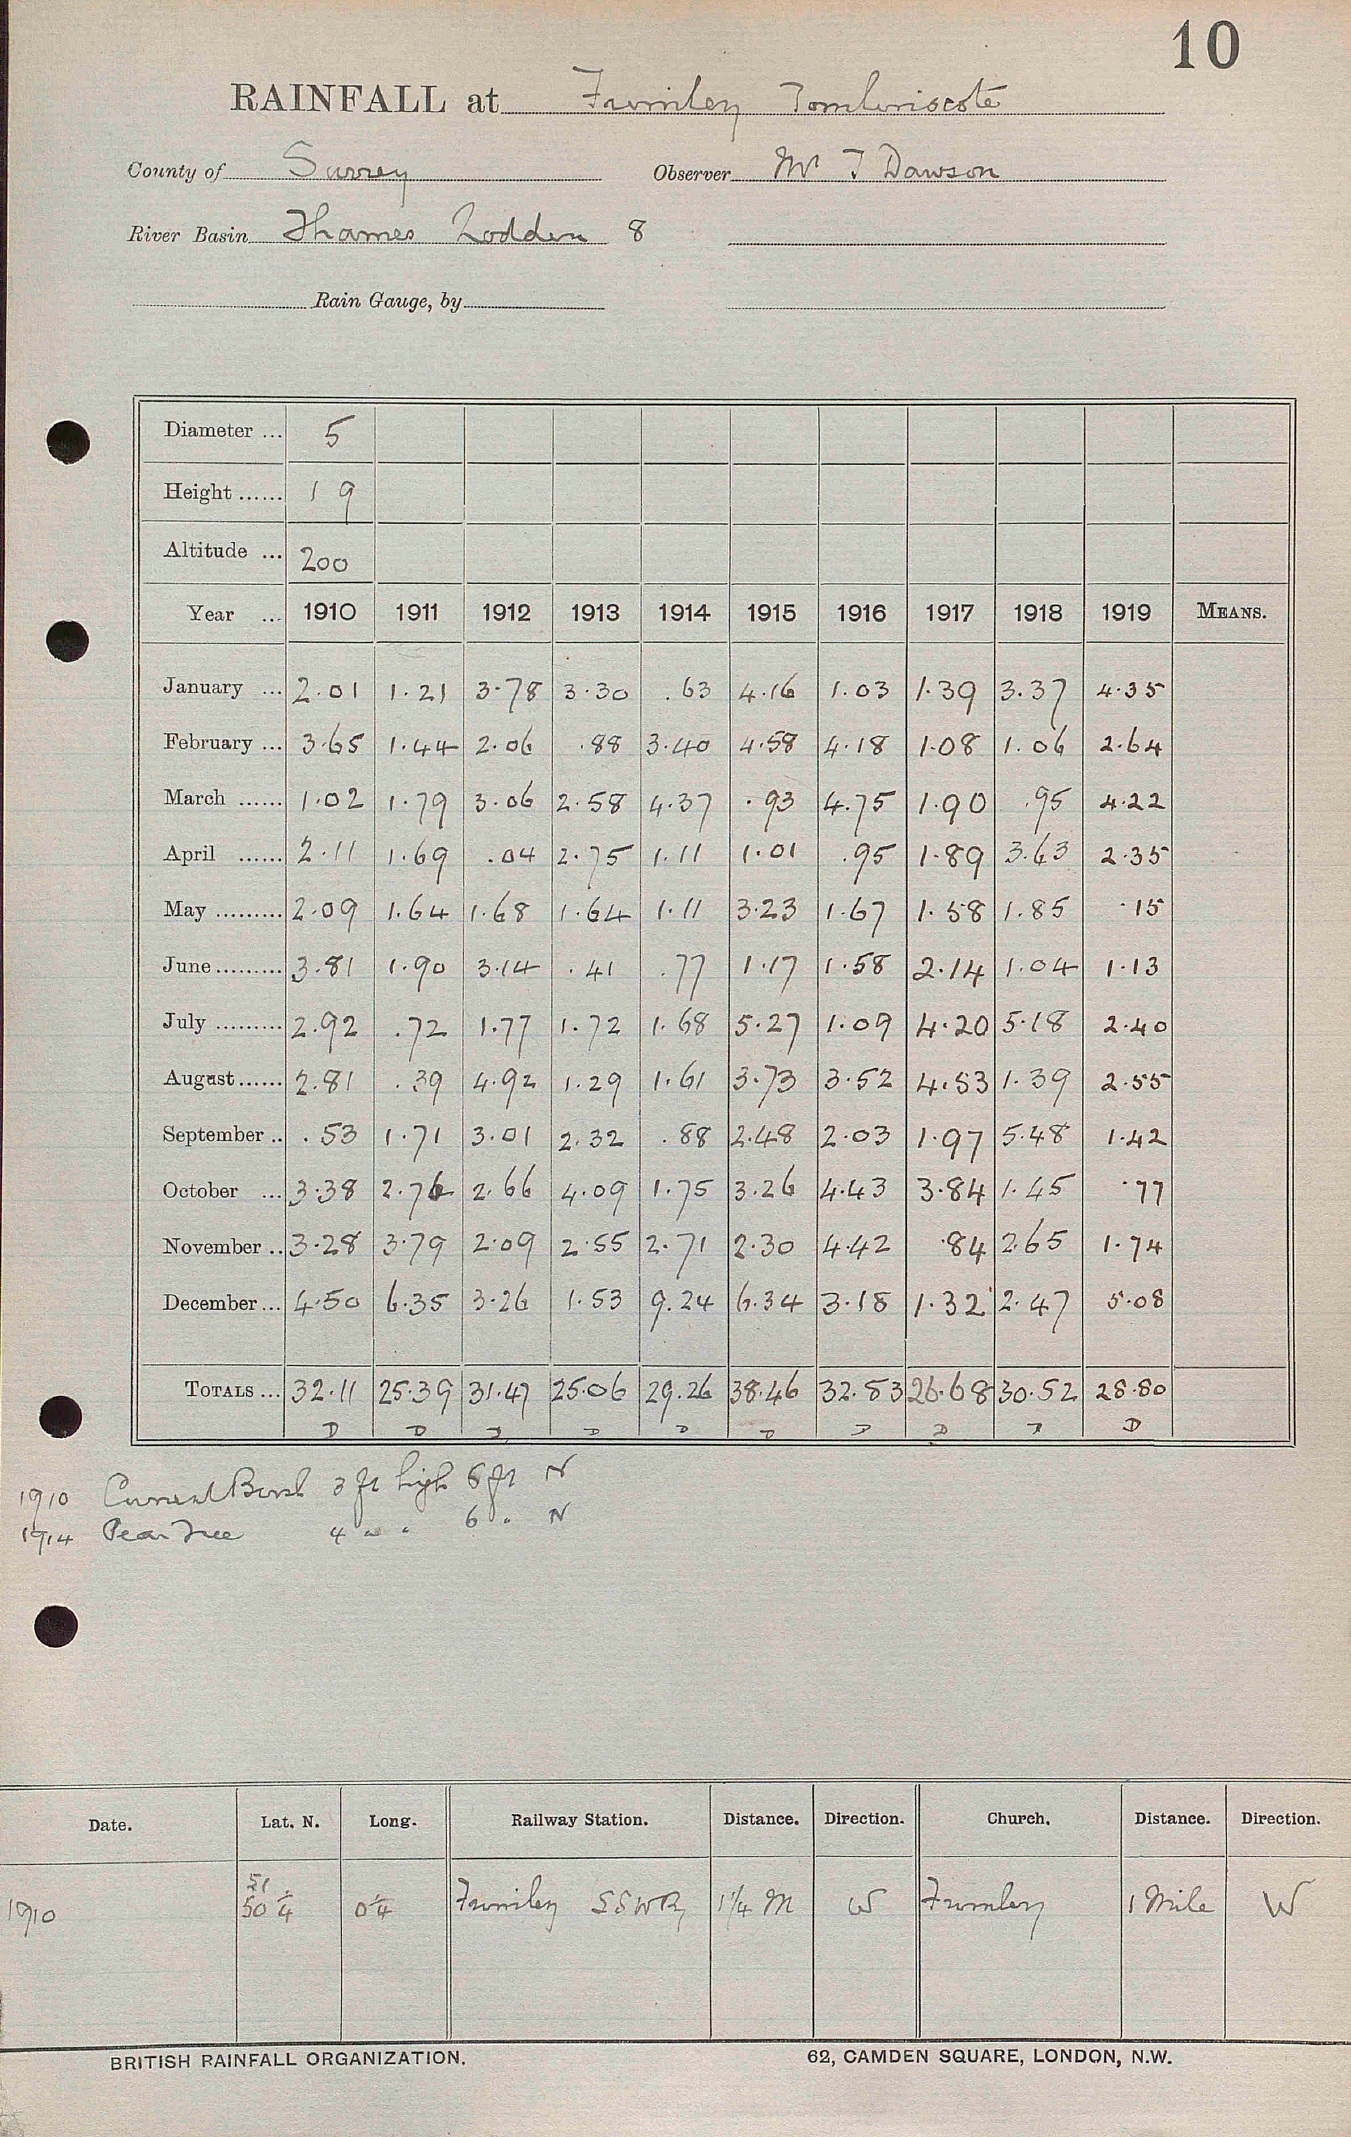 10
RAINFALL at Frimley Tomlinscote
County of Surrey Observer Mr T Dawson
River Basin Thames Loddon 8
Rain Gauge, by
Diameter ... 5
Height ...... 1 9
Altitude ... 200
Year ... 1910 1911 1912 1913 1914 1915 1916 1917 1918 1919 MEANS.
January ... 2.01 1.21 3.78 3.30 .63 4.16 1.03 1.39 3.37 4.35
February ... 3.65 1.44 2.06 .88 3.40 4.58 4.18 1.08 1.06 2.64
March ...... 1.02 1.79 3.06 2.58 4.37 .93 4.75 1.90 .95 4.22
April ...... 2.11 1.69 .04 2.75 1.11 1.01 .95 1.89 3.63 2.35
May ......... 2.09 1.64 1.68 1.64 1.11 3.23 1.67 1.58 1.85 .15
June ......... 3.81 1.90 3.14 .41 .77 1.17 1.58 2.14 1.04 1.13
July ......... 2.92 .72 1.77 1.72 1.68 5.27 1.09 4.20 5.18 2.40
August ...... 2.81 .39 4.92 1.29 1.61 3.73 3.52 4.53 1.39 2.55
September .. .53 1.71 3.01 2.32 .88 2.48 2.03 1.97 5.48 1.42
October ... 3.38 2.76 2.66 4.09 1.75 3.26 4.43 3.84 1.45 .77
November .. 3.28 3.79 2.09 2.55 2.71 2.30 4.42 .84 2.65 1.74
December ... 4.50 6.35 3.26 1.53 9.24 6.34 3.18 1.32 2.47 5.08
TOTALS ... 32.11 25.39 31.47 25.06 29.26 38.46 32.83 26.68 30.52 28.80
D D D D D D D D D D
1910 Currant Bush 3 ft high 6 ft N
1914 Pear Tree 4 " " 6 " N
Date. Lat. N. Long. Railway Station. Distance. Direction. Church. Distance. Direction.
51
1910 50 1/4 0 1/4 Frimley LSWR 1 1/4 M W Frimley 1 Mile W
BRITISH RAINFALL ORGANIZATION. 62, CAMDEN SQUARE, LONDON, N.W.